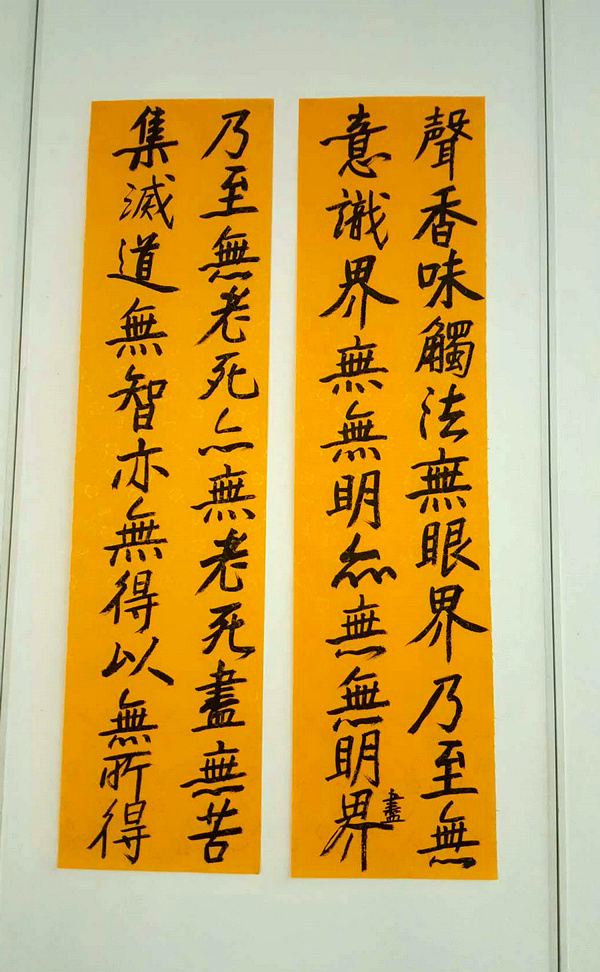 聲香味觸法無眼界乃至無
意識界無無明亦無無明界盡
乃至無老死亦無老死盡無苦
集滅道無智亦無得以無所得